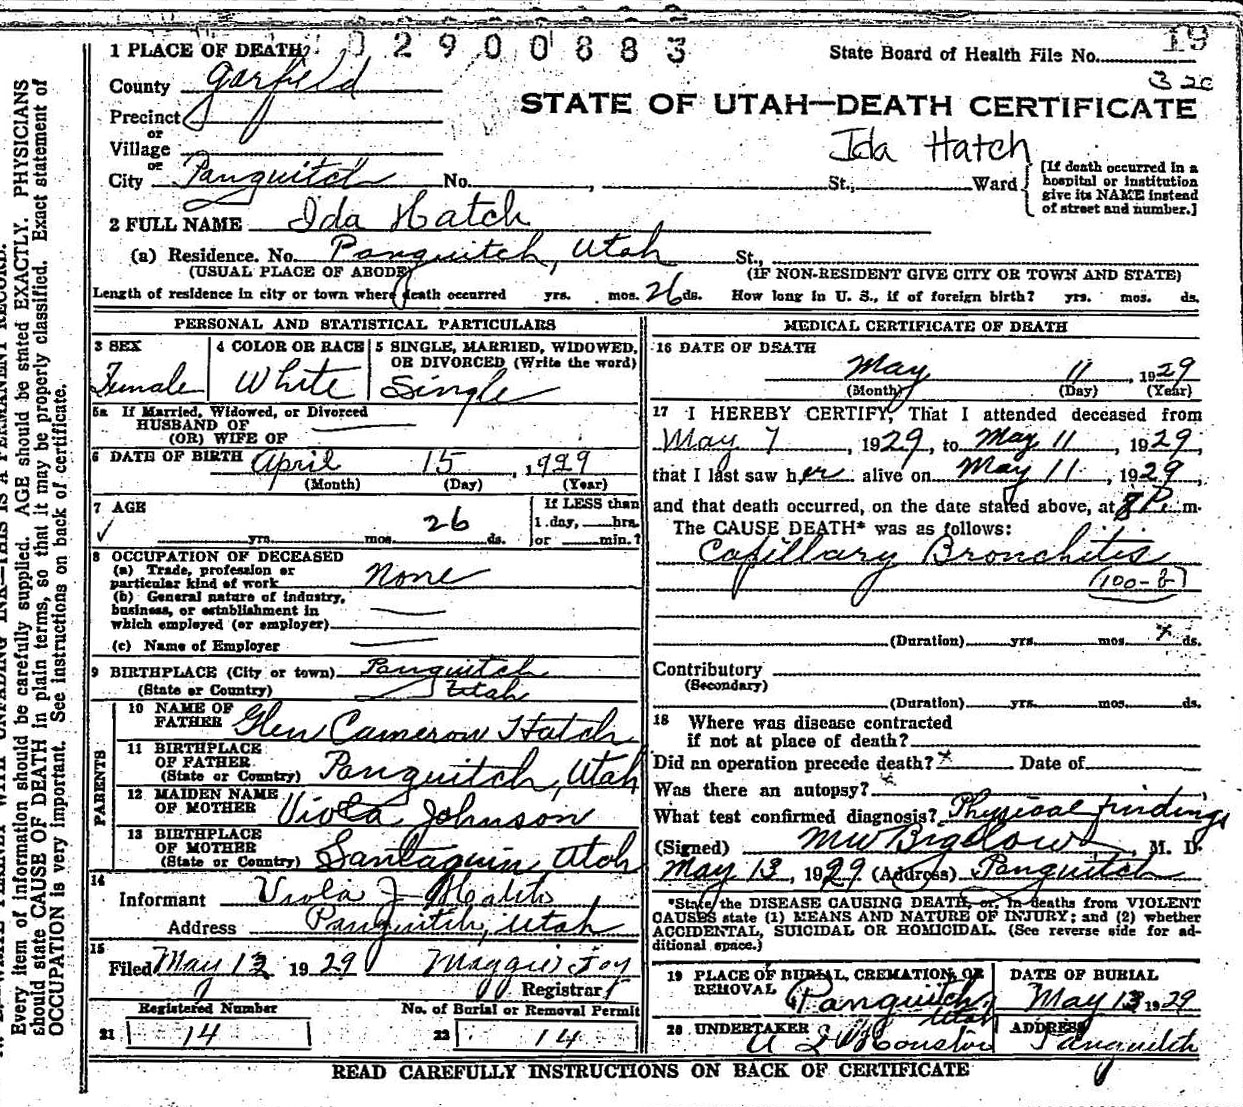 02900883
19
1 PLACE OF DEATH
State Board of Health File No.
County Garfield
3 20
STATE OF UTAH—DEATH CERTIFICATE
Precinct
or
Village
or
City Panguitch No. , St., Ward
Ida Hatch
[If death occurred in a
hospital or institution
give its NAME instead
of street and number.]
2 FULL NAME Ida Hatch
(a) Residence. No. Panguitch, Utah St.,
(USUAL PLACE OF ABODE) (IF NON-RESIDENT GIVE CITY OR TOWN AND STATE)
Length of residence in city or town where death occurred yrs. mos. 26 ds. How long in U. S., if of foreign birth? yrs. mos. ds.
PERSONAL AND STATISTICAL PARTICULARS
3 SEX
Female
4 COLOR OR RACE
White
5 SINGLE, MARRIED, WIDOWED,
OR DIVORCED (Write the word)
Single
5a If Married, Widowed, or Divorced
HUSBAND OF
(OR) WIFE OF
6 DATE OF BIRTH April 15, 1929
(Month) (Day) (Year)
7 AGE
yrs. mos. 26 ds.
If LESS than
1 day, hrs.
or min.?
8 OCCUPATION OF DECEASED
(a) Trade, profession or
particular kind of work None
(b) General nature of industry,
business, or establishment in
which employed (or employer)
(c) Name of Employer
9 BIRTHPLACE (City or town) Panguitch
(State or Country) Utah
PARENTS
10 NAME OF
FATHER Glen Cameron Hatch
11 BIRTHPLACE
OF FATHER
(State or Country) Panguitch, Utah
12 MAIDEN NAME
OF MOTHER Viola Johnson
13 BIRTHPLACE
OF MOTHER
(State or Country) Santaquin, Utah
14
Informant Viola J.
Address Panguitch, Utah
15
Filed May 13 1929 Maggie Foy
Registrar
Registered Number
21 14
No. of Burial or Removal Permit
22 14
MEDICAL CERTIFICATE OF DEATH
16 DATE OF DEATH
May 11, 1929
(Month) (Day) (Year)
17 I HEREBY CERTIFY, That I attended deceased from
May 7, 1929, to May 11, 1929,
that I last saw her alive on May 11, 1929,
and that death occurred, on the date stated above, at 8 P. m.
The CAUSE DEATH* was as follows:
Capillary Bronchitis
(100-b)
(Duration) yrs. mos. ds.
Contributory
(Secondary)
(Duration) yrs. mos. ds.
18 Where was disease contracted
if not at place of death?
Did an operation precede death? x Date of
Was there an autopsy? x
What test confirmed diagnosis? Physical findings
(Signed) MW Bigelow, M. D.
May 13, 1929 (Address) Panguitch
*State the DISEASE CAUSING DEATH, or, in deaths from VIOLENT
CAUSES state (1) MEANS AND NATURE OF INJURY; and (2) whether
ACCIDENTAL, SUICIDAL OR HOMICIDAL. (See reverse side for ad-
ditional space.)
19 PLACE OF BURIAL, CREMATION, OR
REMOVAL Panguitch, Utah
DATE OF BURIAL
May 13 1929
20 UNDERTAKER
Houston
ADDRESS
Panguitch
READ CAREFULLY INSTRUCTIONS ON BACK OF CERTIFICATE
Every item of information should be carefully supplied. AGE should be stated EXACTLY. PHYSICIANS
should state CAUSE OF DEATH in plain terms, so that it may be properly classified. Exact statement of
OCCUPATION is very important. See instructions on back of certificate.